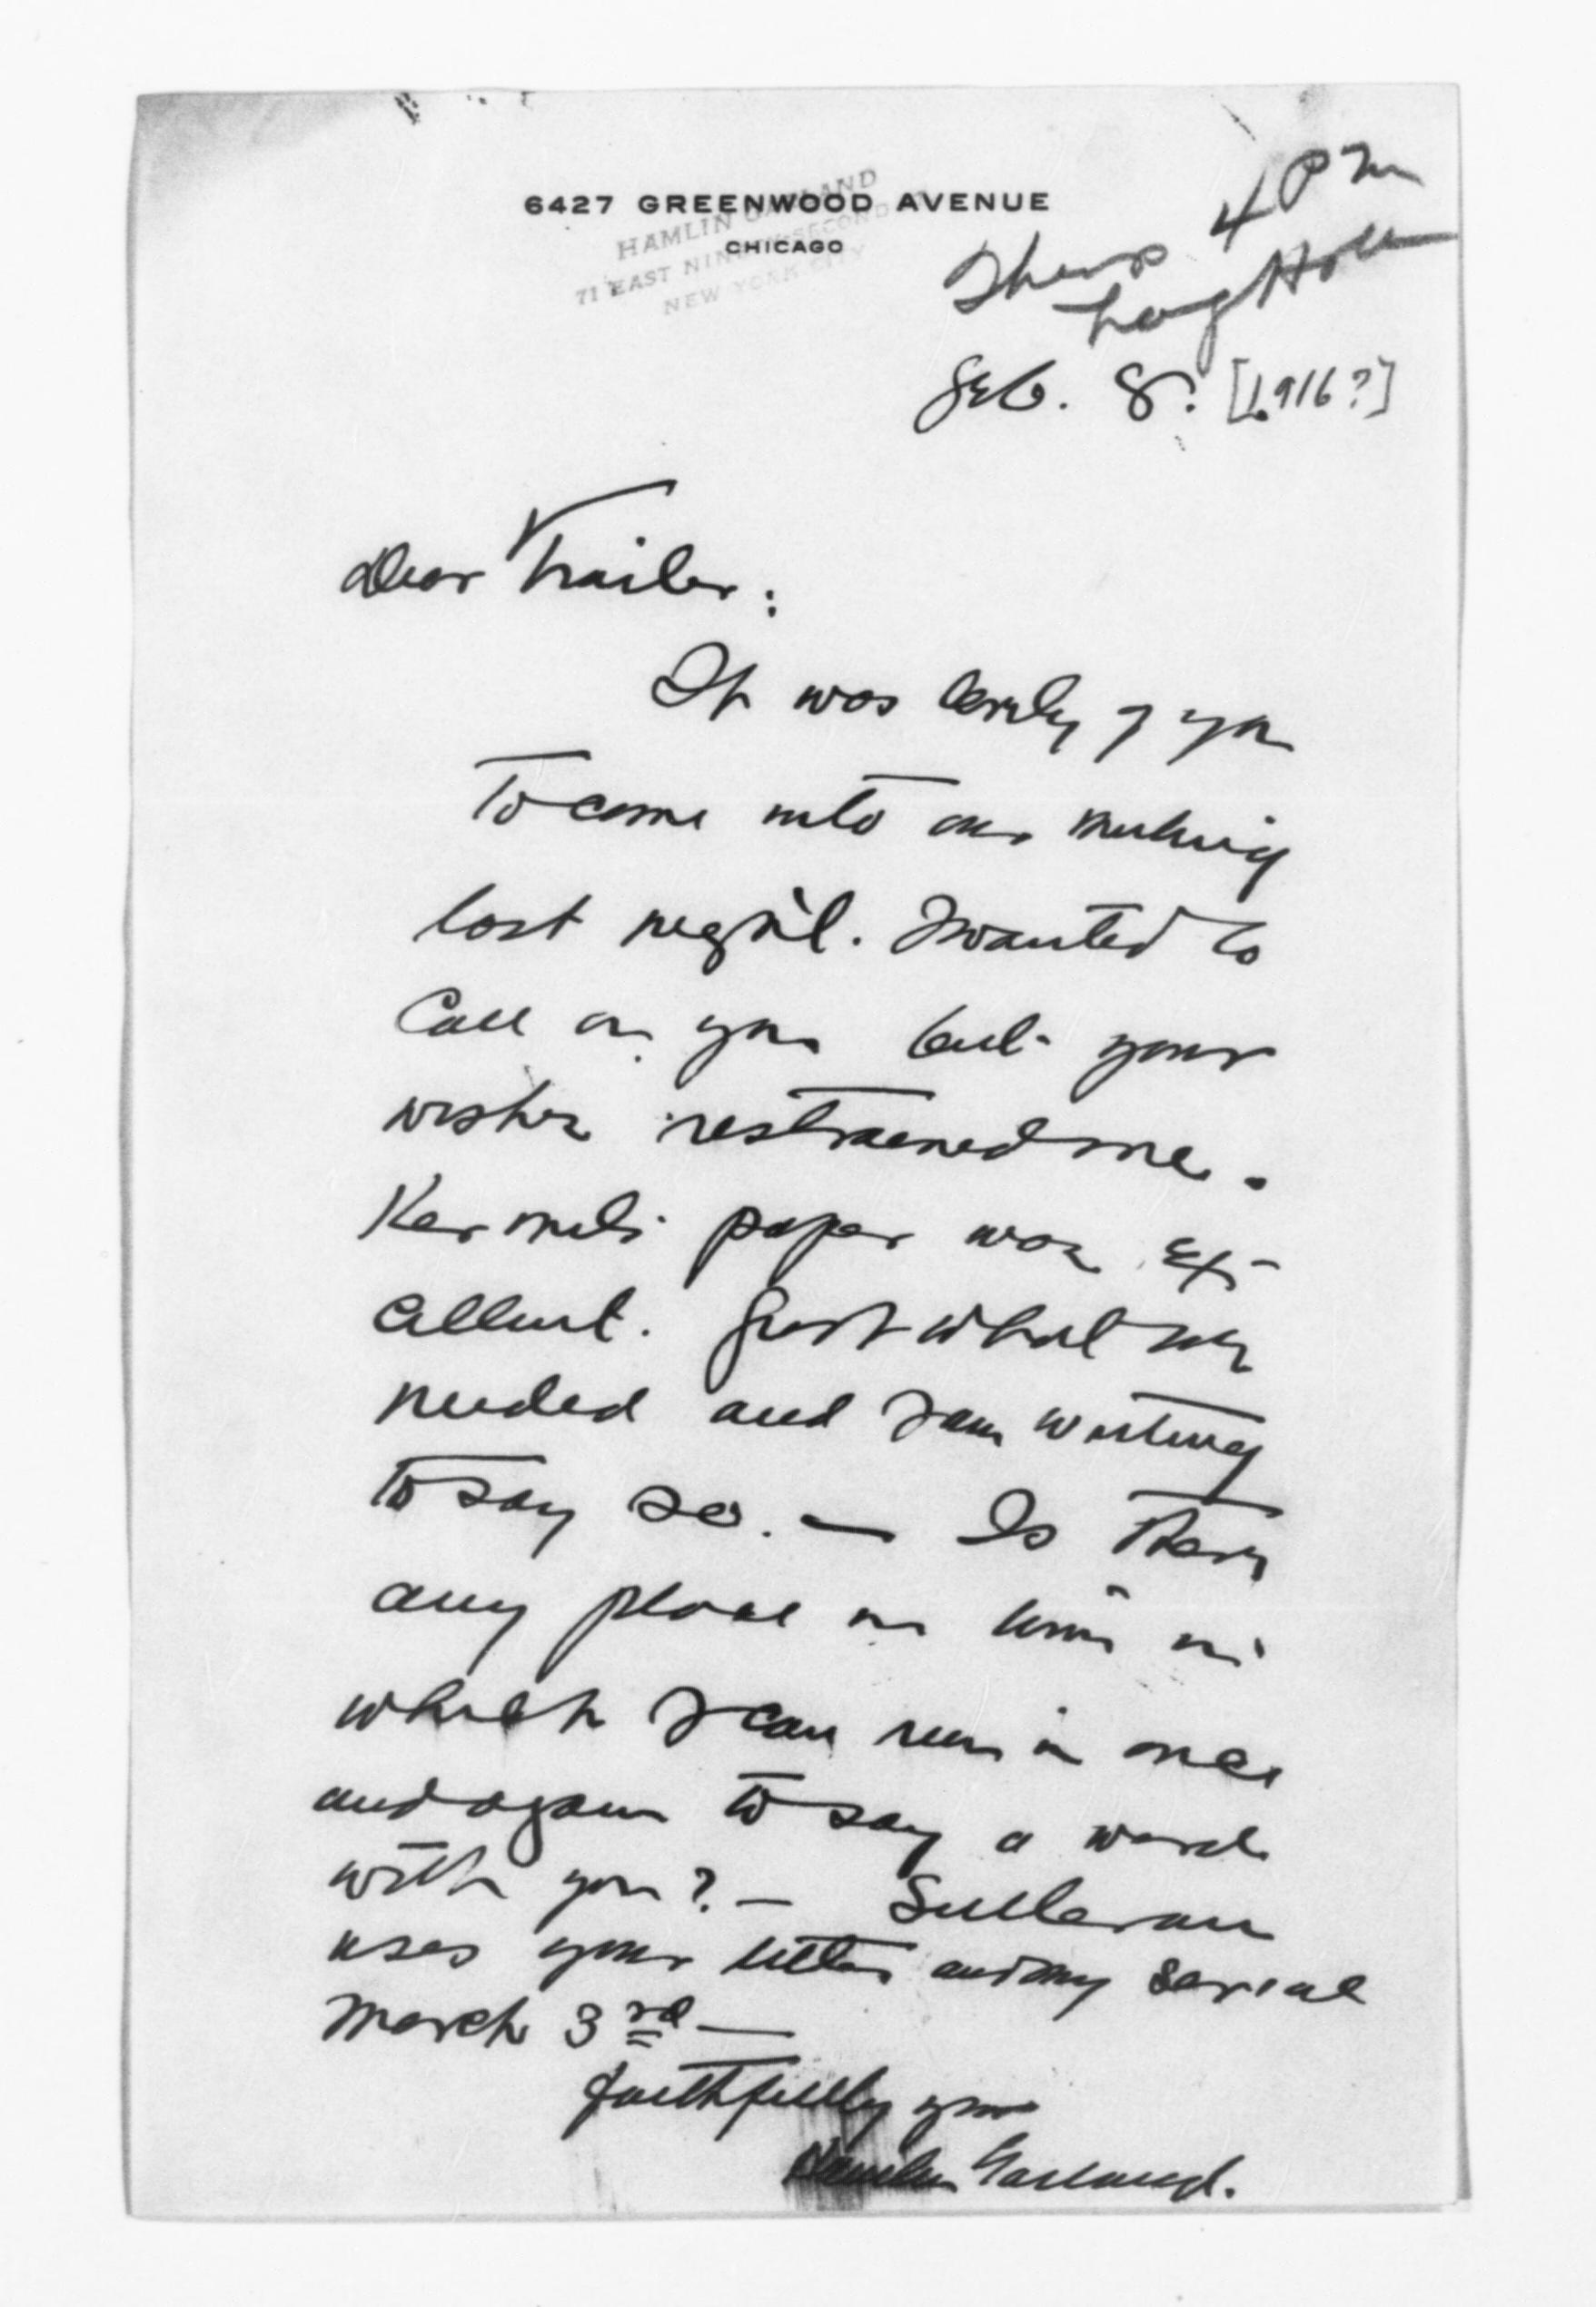 6427 GREENWOOD AVENUE
CHICAGO
HAMLIN GARLAND
71 EAST NINETY-SECOND
NEW YORK CITY
4 PM
Thurs
Feb. 8. [1916?]
Dear Trailer:
It was lovely of you
to come into our meeting
last night. I wanted to
Call on you but your
wishes restrained me.
Kermit's paper was ex-
cellent. Just what we
needed and I am writing
to say so. — Is there
any place or time in
which I can run in once
and again to say a word
with you? — Sullivan
uses your letter and my serial
March 3rd —
Faithfully yours
Hamlin Garland.